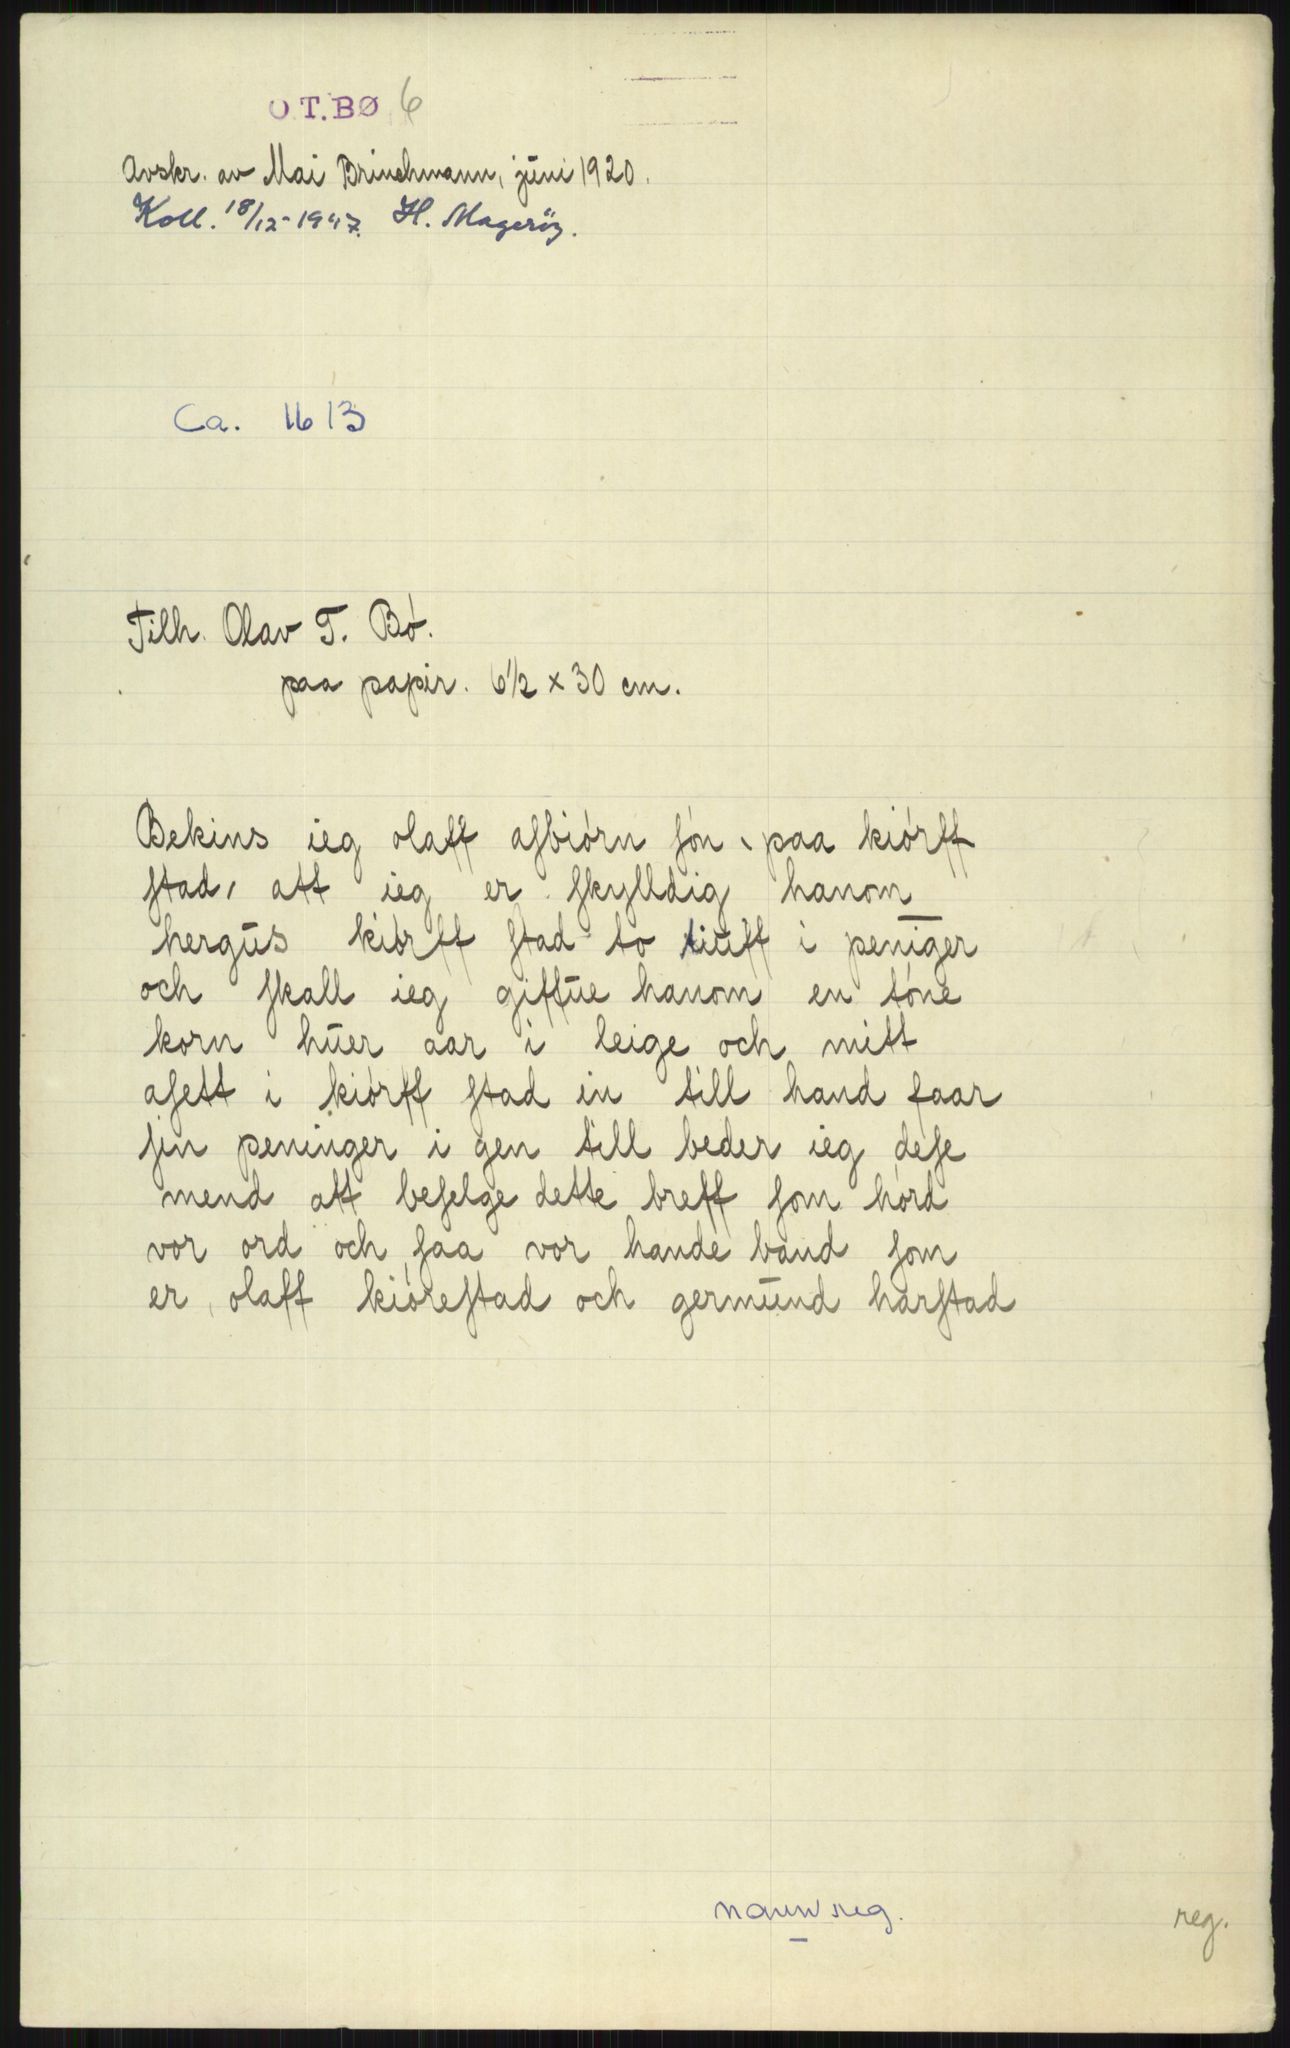 O.T.BØ 6
Avskr. av Mai Brinchmann, juni 1920.
Koll. 18/12-1947. H. Magerøy.
Ca. 1613
Tilh. Olav T. Bø.
paa papir. 6½ x 30 cm.
Bekins ieg olaff asbiórn són paa kiórff
stad, att ieg er skylldig hanom
hergus kiórff stad to tiuff i peniger
och skall ieg giffue hanom en tóne
korn huer aar i leige och mitt
asett i kiórff stad in till hand faar
sin peninger i gen till beder ieg dese
mend att beselge dette breff som hórd
vor ord och saa vor hande band som
er, olaff kiórestad och germund harstad
navnreg.
reg.